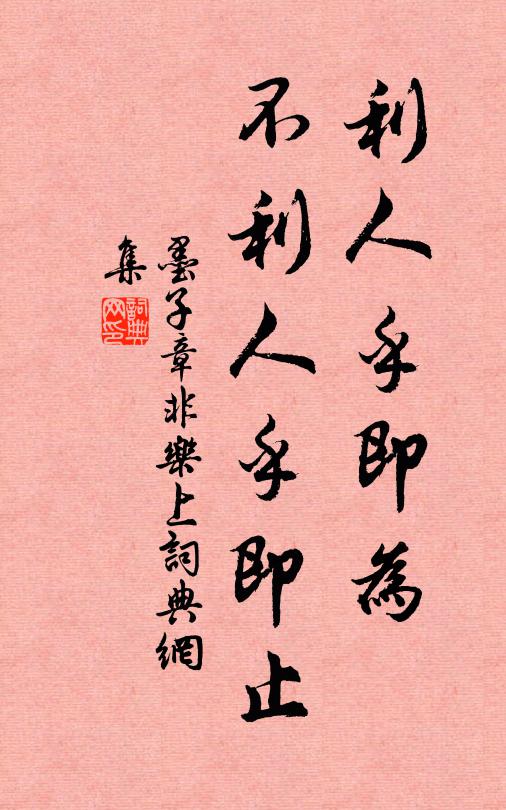 利人乎即為
不利人乎即止
墨子章非樂上詞典網
集
詞典
网印